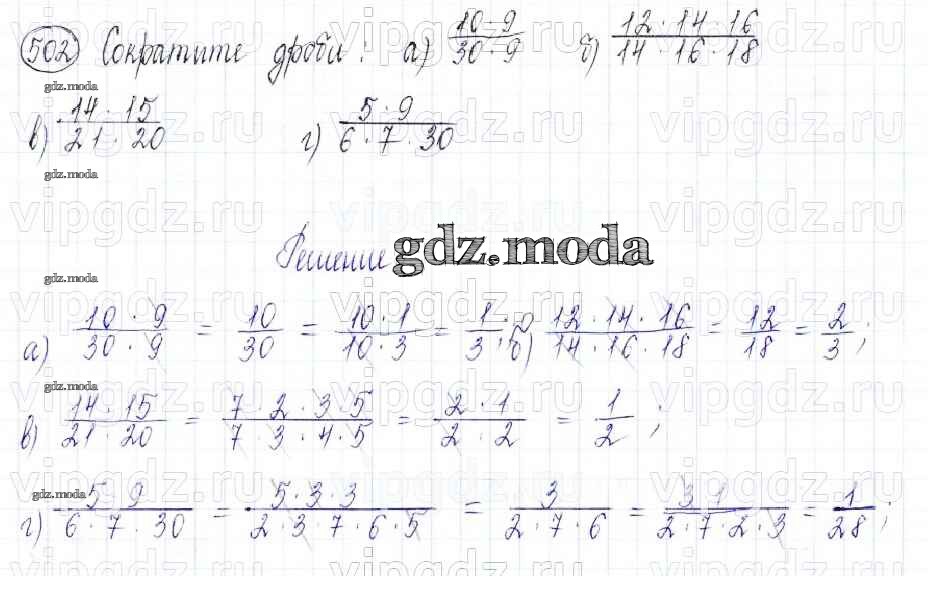 502 Сократите дроби: а) 10·9/30·9 б) 12·14·16/14·16·18
gdz.moda
в) 14·15/21·20 г) 5·9/6·7·30
gdz.moda
Решение gdz.moda
gdz.moda
а) 10·9/30·9 = 10/30 = 10·1/10·3 = 1/3; б) 12·14·16/14·16·18 = 12/18 = 2/3;
gdz.moda
в) 14·15/21·20 = 7·2·3·5/7·3·4·5 = 2·1/2·2 = 1/2;
gdz.moda
г) 5·9/6·7·30 = 5·3·3/2·3·7·6·5 = 3/2·7·6 = 3·1/2·7·2·3 = 1/28;
vipgdz.ru vipgdz.ru vipgdz.ru